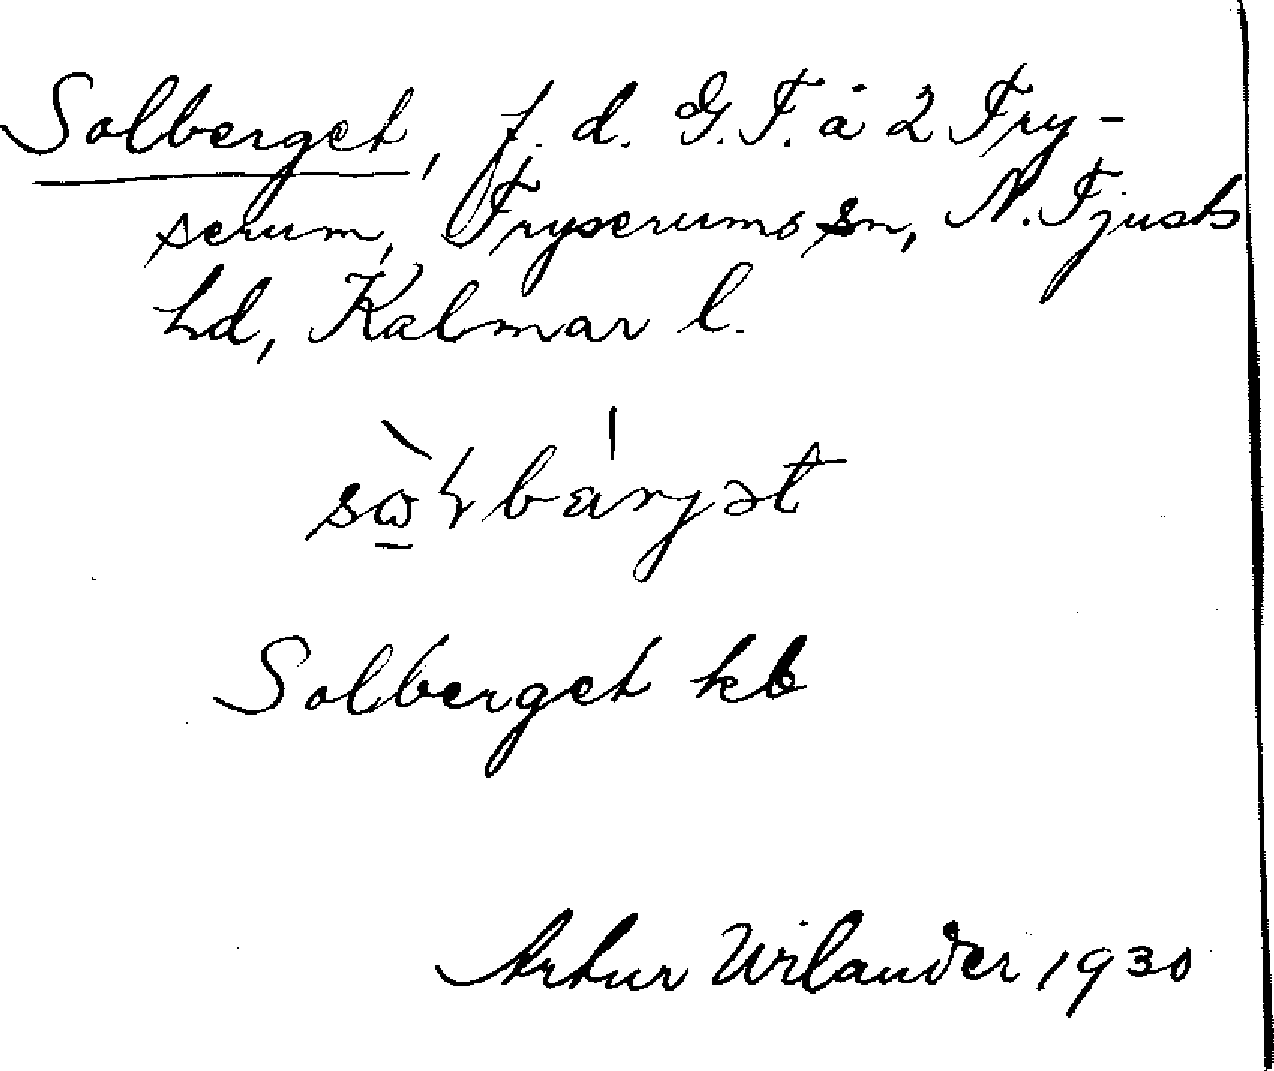 Solberget, f. d. G. T. å 2 Try-
serum, Tryserums sn, N. Tjusts
hd, Kalmar l.
Solberget kb
Artur Wilander 1930